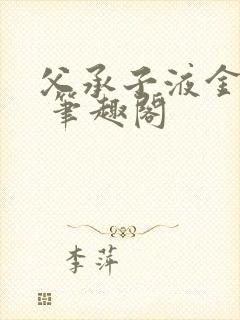 父承子液金
笔趣阁
李萍